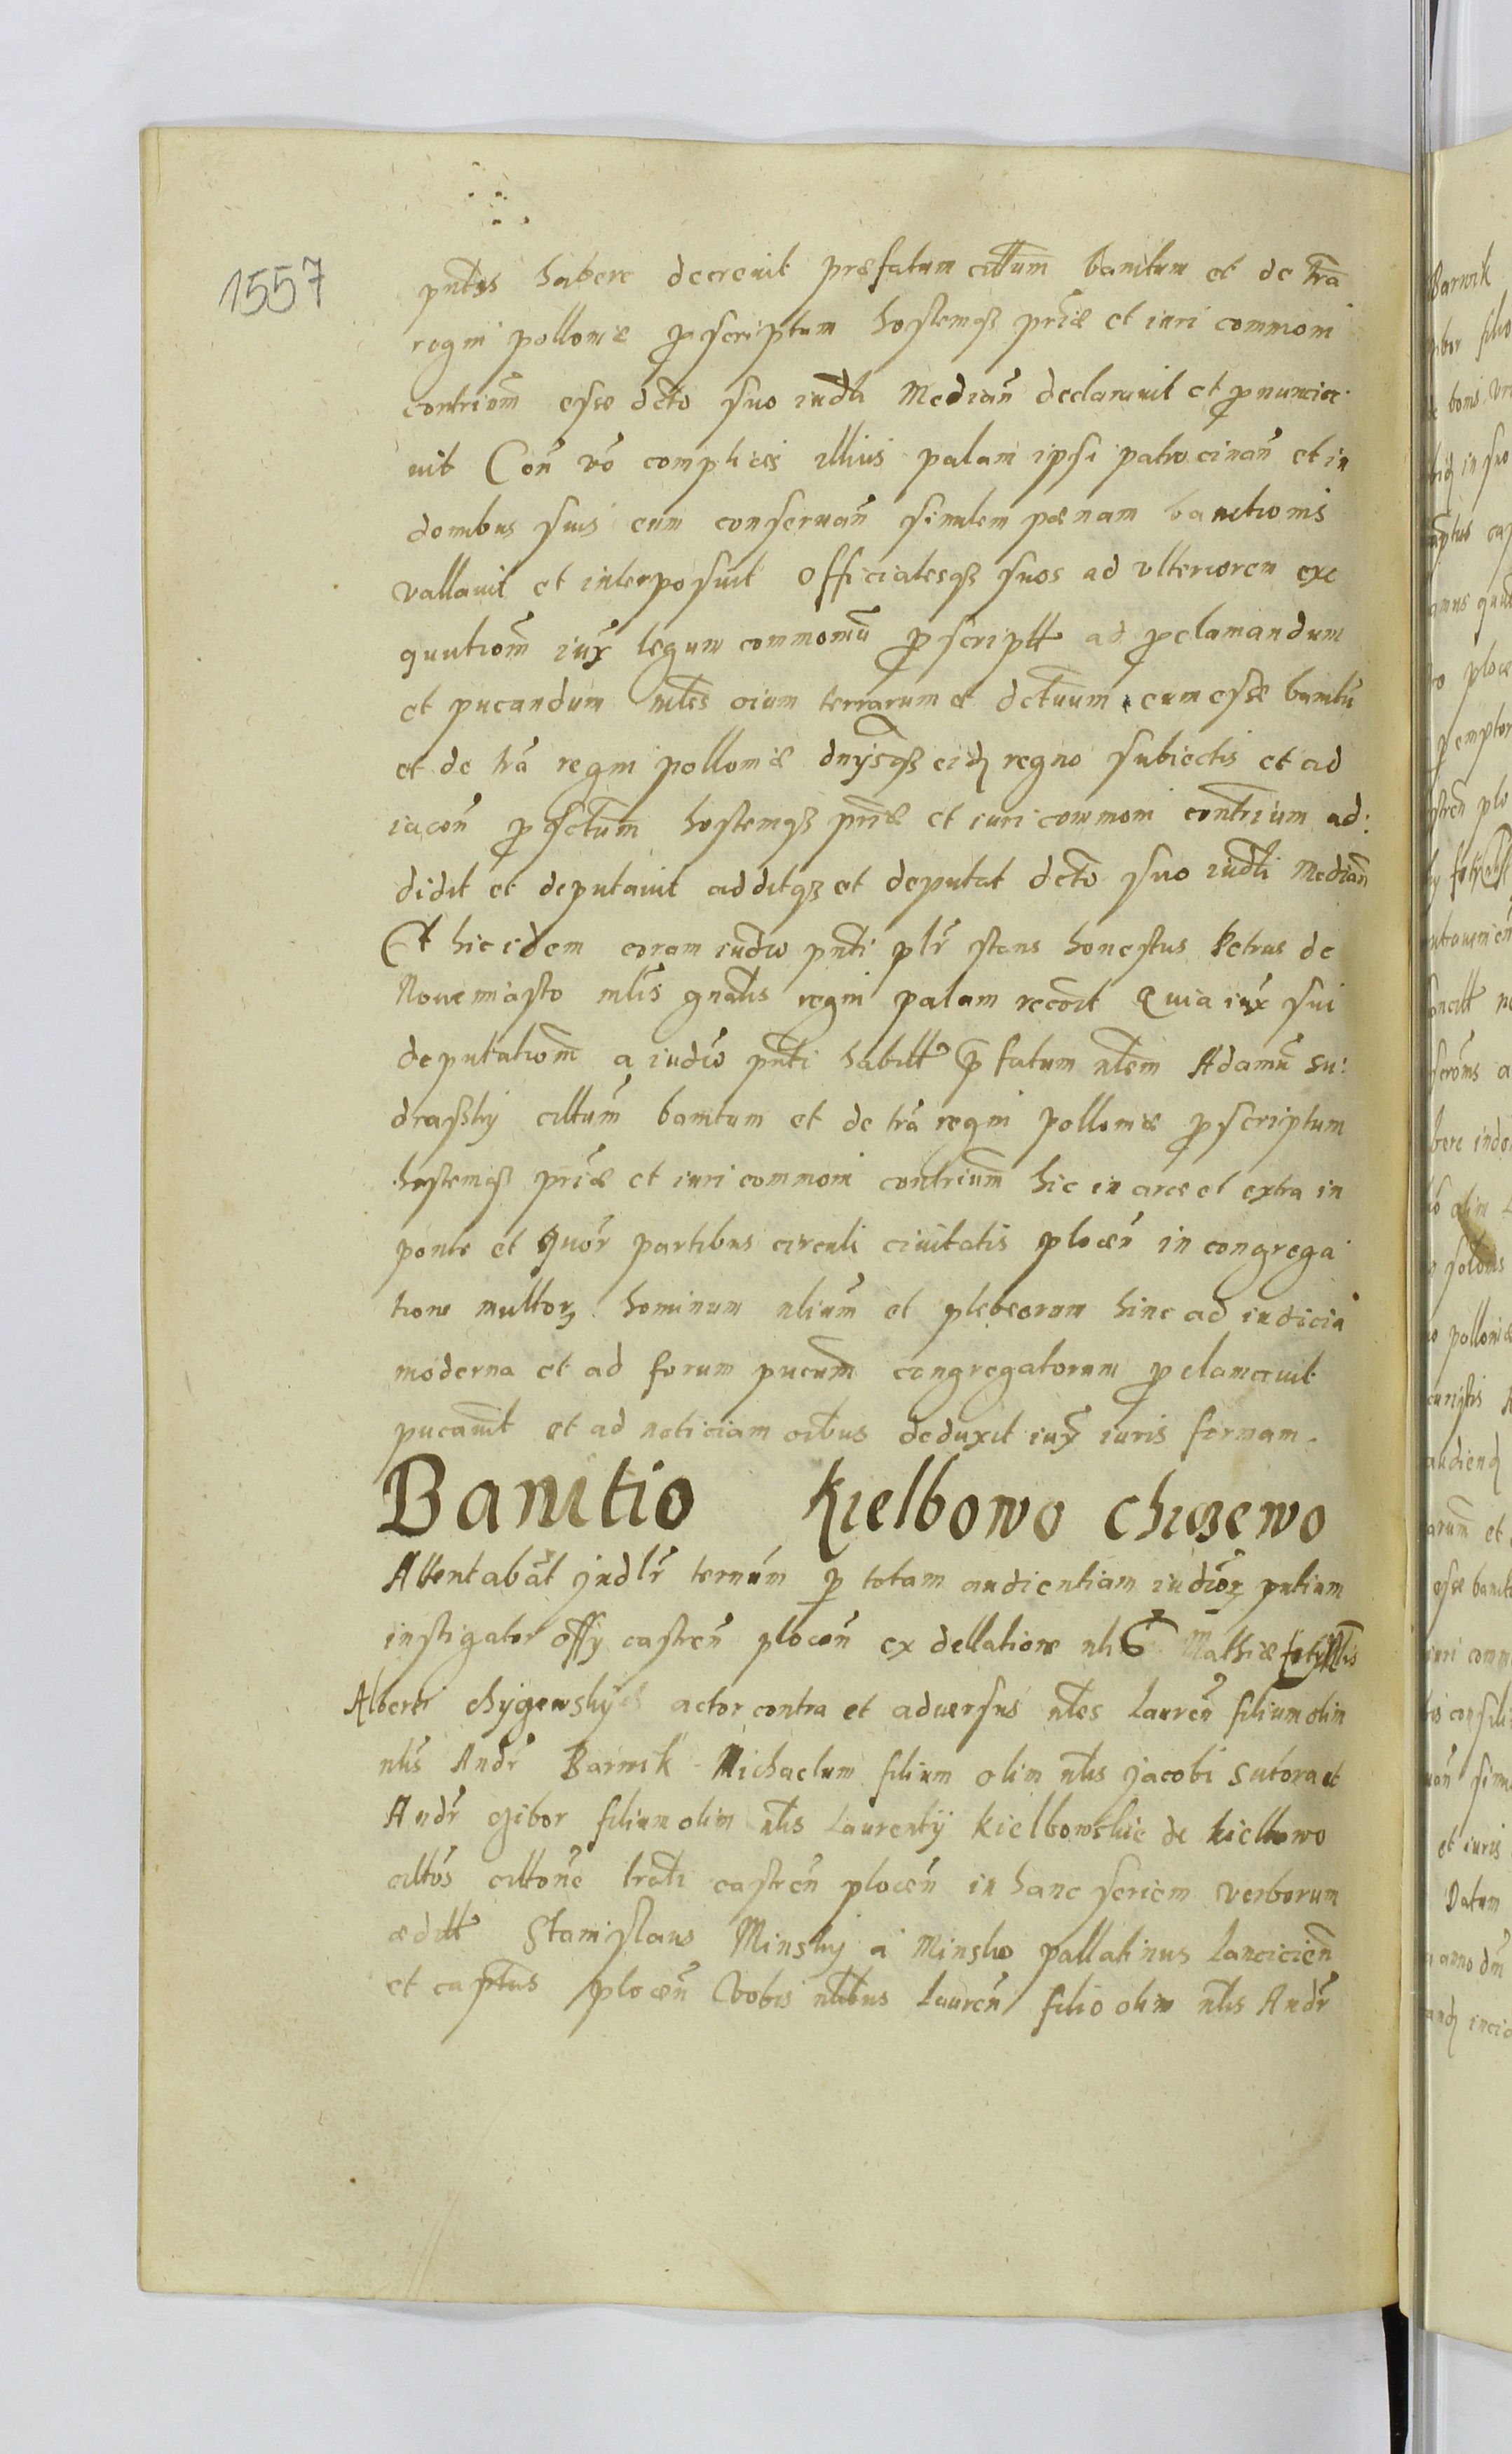 1557
pntes habere decrevit præfatum citum banitum et de tra
regni polloniæ pscriptum hostemqȝ priæ et iuri commoni
contrium esse dcto suo iudli Median declaravit et pnuncia
vit Con vo complices illius palam ipsi patrocinan et in
domibus suis eum conservan similem pænam banitionis
vallavit et interposuit officialesqȝ suos ad ulteriorem exe
qutiom iux legum commonium pscriptt ad pclamandum
et pucandum ntles oium terrarum et dctuum eum esse banitu
et de tra regni polloniæ dnysqȝ eid regno subiectis et ad
iacen psctum hostemqȝ priæ et iuri commoni contrium ad:
didit et deputavit additqȝ et deputat dcto suo iudli Median
Et hic idem coram iudio pnti plr stans honestus Petrus de
Novemiasto mlis gnalis regni palam recoit Quia iux sui
deputatiom a iudio pnti habitt pfatum nlem Adamu Su:
draszky cittum banitum et de tra regni polloniæ pscriptum
hostemqȝ priæ et iuri commoni contrium hic in arce et extra in
ponte et quor partibus circuli civitatis plocen in congrega
tione multorȝ hominum nlium et plebeorum hinc ad iudicia
moderna et ad forum pucum congregatorum pclamavit
pucavit et ad noticiam oibus deduxit iux iuris formam.
Banitio Kielbowo Chizewo
Attentabat judlr ternum p totam audientiam iudiorȝ pntium
instigator offy castren plocen ex dellatione nlis Mathiæ
Alberti chygewsky actor contra et adversus nles Lauren filium olim
nlis Andr Barwik Michaelum filium olim nlis Jacobi Sutora et
Andr gibor filium olim nlis Laurentij Kielbowskie de Kielbowo
cittos cittone lrali castren plocen in hanc seriem verborum
æditt Stanislaus Minsky a Minsko pallatinus Lancicien
et captus plocen Vobis nlibus Lauren filio olim nlis Andr